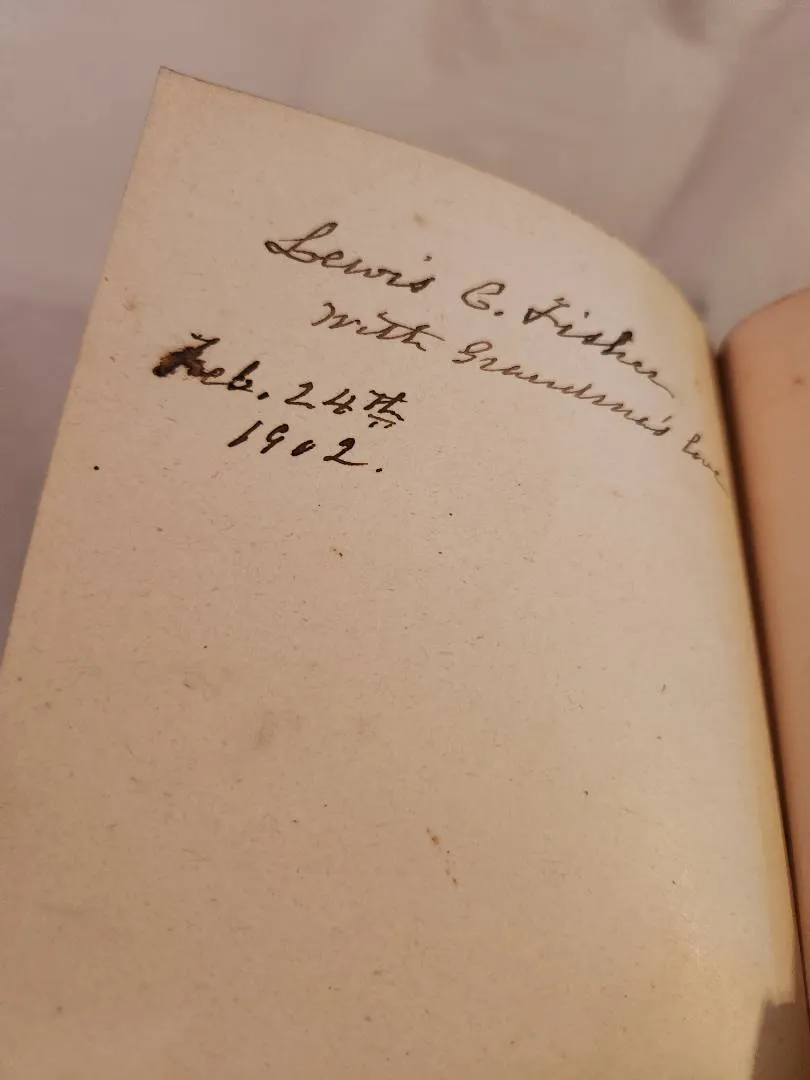 Lewis C. Fisher
With Grandma's love
Feb. 24th
1902.